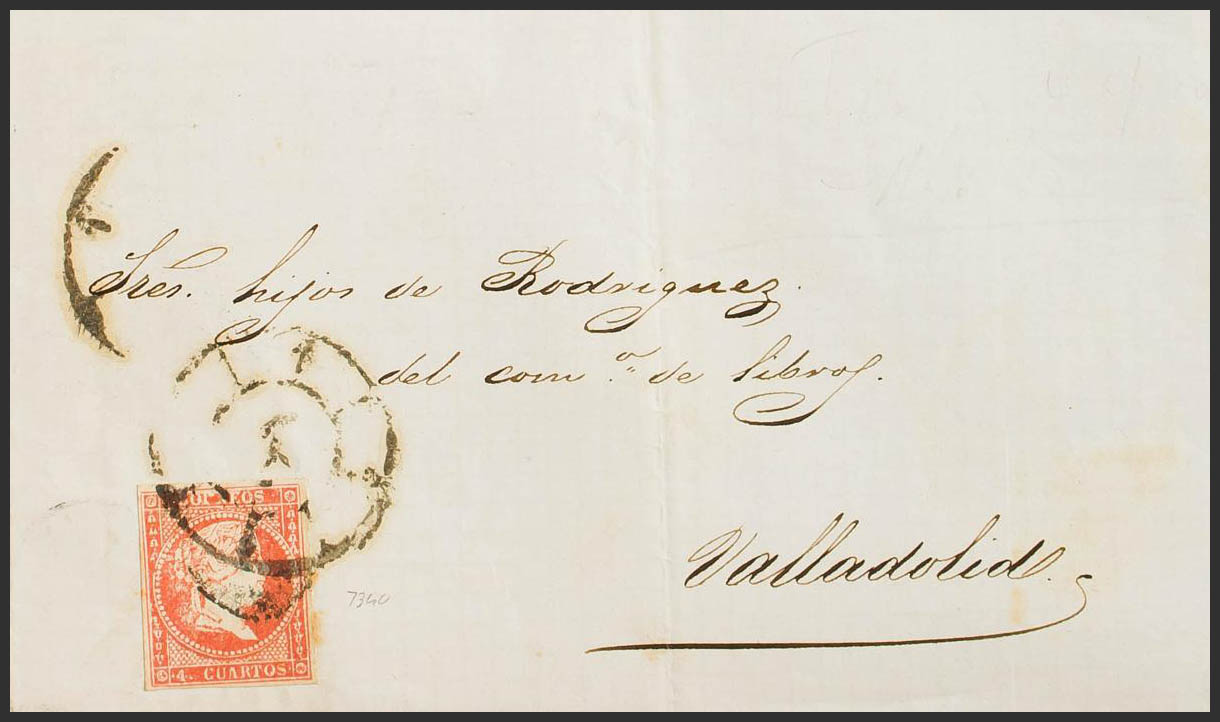 Sres. hijos de Rodriguez.
del com.º de libros.
Valladolid.
CORREOS
4 CUARTOS
7340